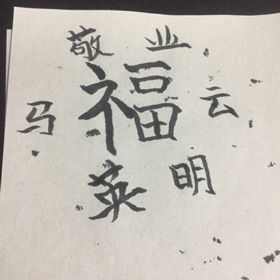 敬业
马福云
英明